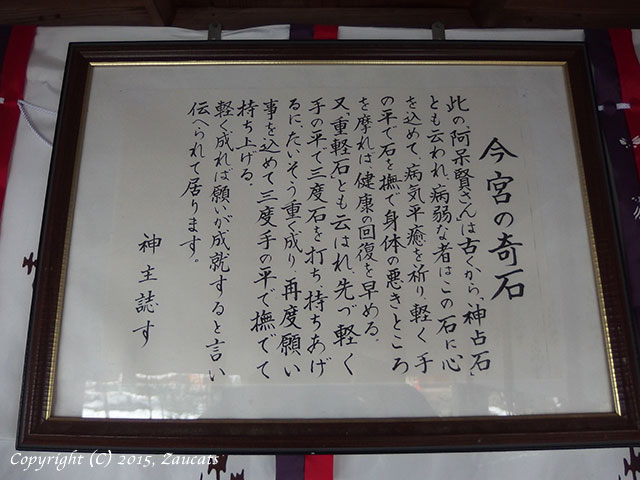 今宮の奇石
此の阿呆賢さんは古くから、「神占石」
とも云われ、病弱な者はこの石に心
を込めて、病気平癒を祈り、軽く手
の平で石を撫で身体の悪きところ
を摩れば、健康の回復を早める。
又、重軽石とも云はれ、先づ軽く
手の平で三度石を打ち、持ちあげ
るに、たいそう重く成り、再度願い
事を込めて三度手の平で撫でて
持ち上げる。
軽く成れば願いが成就すると言い
伝へられて居ります。
神主誌す
Copyright (C) 2015, Zaucats